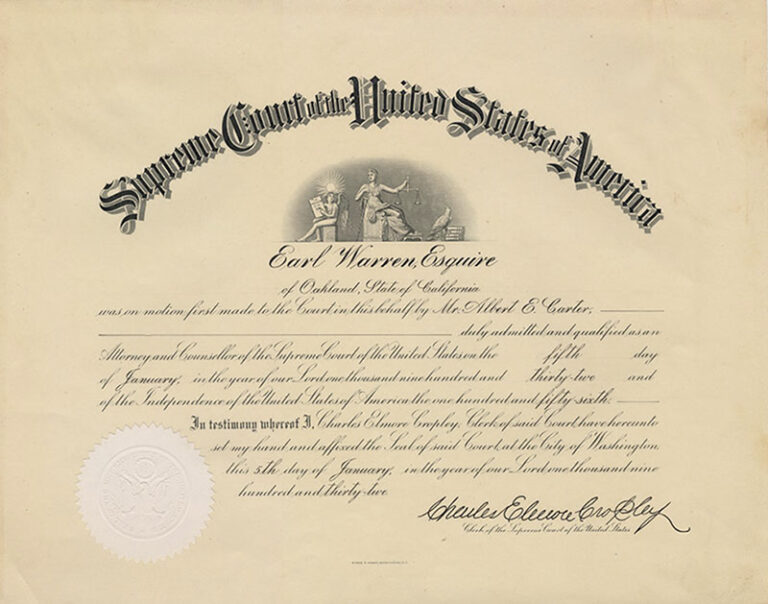 Supreme Court of the United States of America
Earl Warren, Esquire
of Oakland, State of California
was on motion first made to the Court in this behalf by Mr. Albert E. Carter,
duly admitted and qualified as an
Attorney and Counsellor of the Supreme Court of the United States on the fifth day
of January, in the year of our Lord one thousand nine hundred and thirty-two and
of the Independence of the United States of America the one hundred and fifty-sixth.
In testimony whereof I, Charles Elmore Cropley, Clerk of said Court, have hereunto
set my hand and affixed the Seal of said Court, at the City of Washington,
this 5th day of January, in the year of our Lord one thousand nine
hundred and thirty-two
Charles Elmore Cropley
Clerk of the Supreme Court of the United States